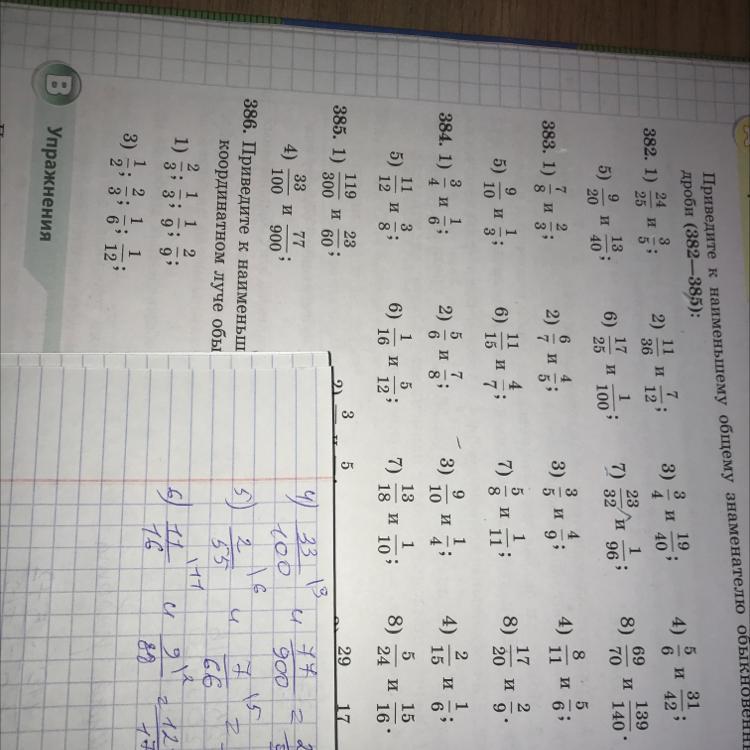 Приведите к наименьшему общему знаменателю обыкновенн
дроби (382—385):
382. 1) 24/25 и 3/5; 2) 11/36 и 7/12; 3) 3/4 и 19/40; 4) 5/6 и 31/42;
5) 9/20 и 13/40; 6) 17/25 и 1/100; 7) 23/32 и 1/96; 8) 69/70 и 139/140.
383. 1) 7/8 и 2/3; 2) 6/7 и 4/5; 3) 3/5 и 4/9; 4) 8/11 и 5/6;
5) 9/10 и 1/3; 6) 11/15 и 4/7; 7) 5/8 и 1/11; 8) 17/20 и 2/9.
384. 1) 3/4 и 1/6; 2) 5/6 и 7/8; 3) 9/10 и 1/4; 4) 2/15 и 1/6;
5) 11/12 и 3/8; 6) 1/16 и 5/12; 7) 13/18 и 1/10; 8) 5/24 и 15/16.
385. 1) 119/300 и 23/60; 2) 3 5 29 17
4) 33/100 и 77/900;
386. Приведите к наименьш
координатном луче обы
1) 2/3; 1/3; 1/9; 2/9;
3) 1/2; 2/3; 1/6; 1/12;
В Упражнения
4) 33/100 \9 и 77/900 =
5) 2/55 \6 и 7/66 \5 =
6) 11/16 \11 и 9/88 \2 =